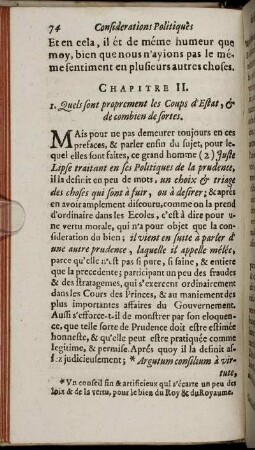 74 Considerations Politiques
Et en cela, il ét de méme humeur que
moy, bien que nous n'ayions pas le mé-
me sentiment en plusieurs autres choses.
CHAPITRE II.
1. Quels sont proprement les Coups d'Estat, &
de combien de sortes.
MAis pour ne pas demeurer toujours en ces
prefaces, & parler enfin du sujet, pour le-
quel elles sont faites, ce grand homme (2) Juste
Lipse traitant en ses Politiques de la prudence,
il la definit en peu de mots, un choix & triage
des choses qui sont à fuir, ou à desirer; & aprés
en avoir amplement discouru, comme on la prend
d'ordinaire dans les Ecoles, c'est à dire pour u-
ne vertu morale, qui n'a pour objet que la con-
sideration du bien; il vient en suite à parler d'
une autre prudence, laquelle il appelle mélée,
parce qu'elle n'est pas si pure, si saine, & entiere
que la precedente; participant un peu des fraudes
& des stratagemes, qui s'exercent ordinairement
dans les Cours des Princes, & au maniement des
plus importantes affaires du Gouvernement.
Aussi s'efforce-t-il de monstrer par son eloquen-
ce, que telle sorte de Prudence doit estre estimée
honneste, & qu'elle peut estre pratiquée comme
legitime, & permise. Aprés quoy il la definit as-
sez judicieusement; * Argutum consilium à vir-
tute,
* Vn conseil fin & artificieux qui s'écarte un peu des
loix & de la vertu, pour le bien du Roy & du Royaume.